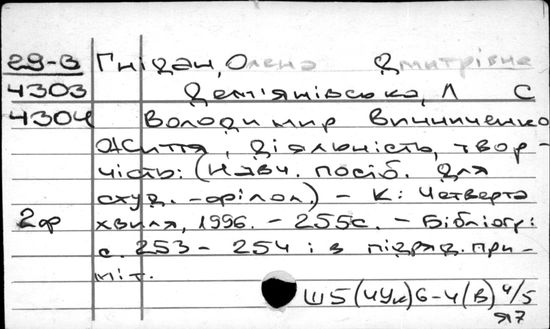 29-В Гнідан, Олена Дмитрівна
4303 Дем'янівська, Л С
4304 Володимир Винниченко
Життя, діяльність, твор-
чість: (Навч. посіб. для
студ. -філол.) - К: Четверта
2ф хвиля, 1996. - 255с. - Бібліогр:
с. 253 - 254 і в підряд. при-
міт.
Ш5(4Ук)6-4(В) 4/5
Я7